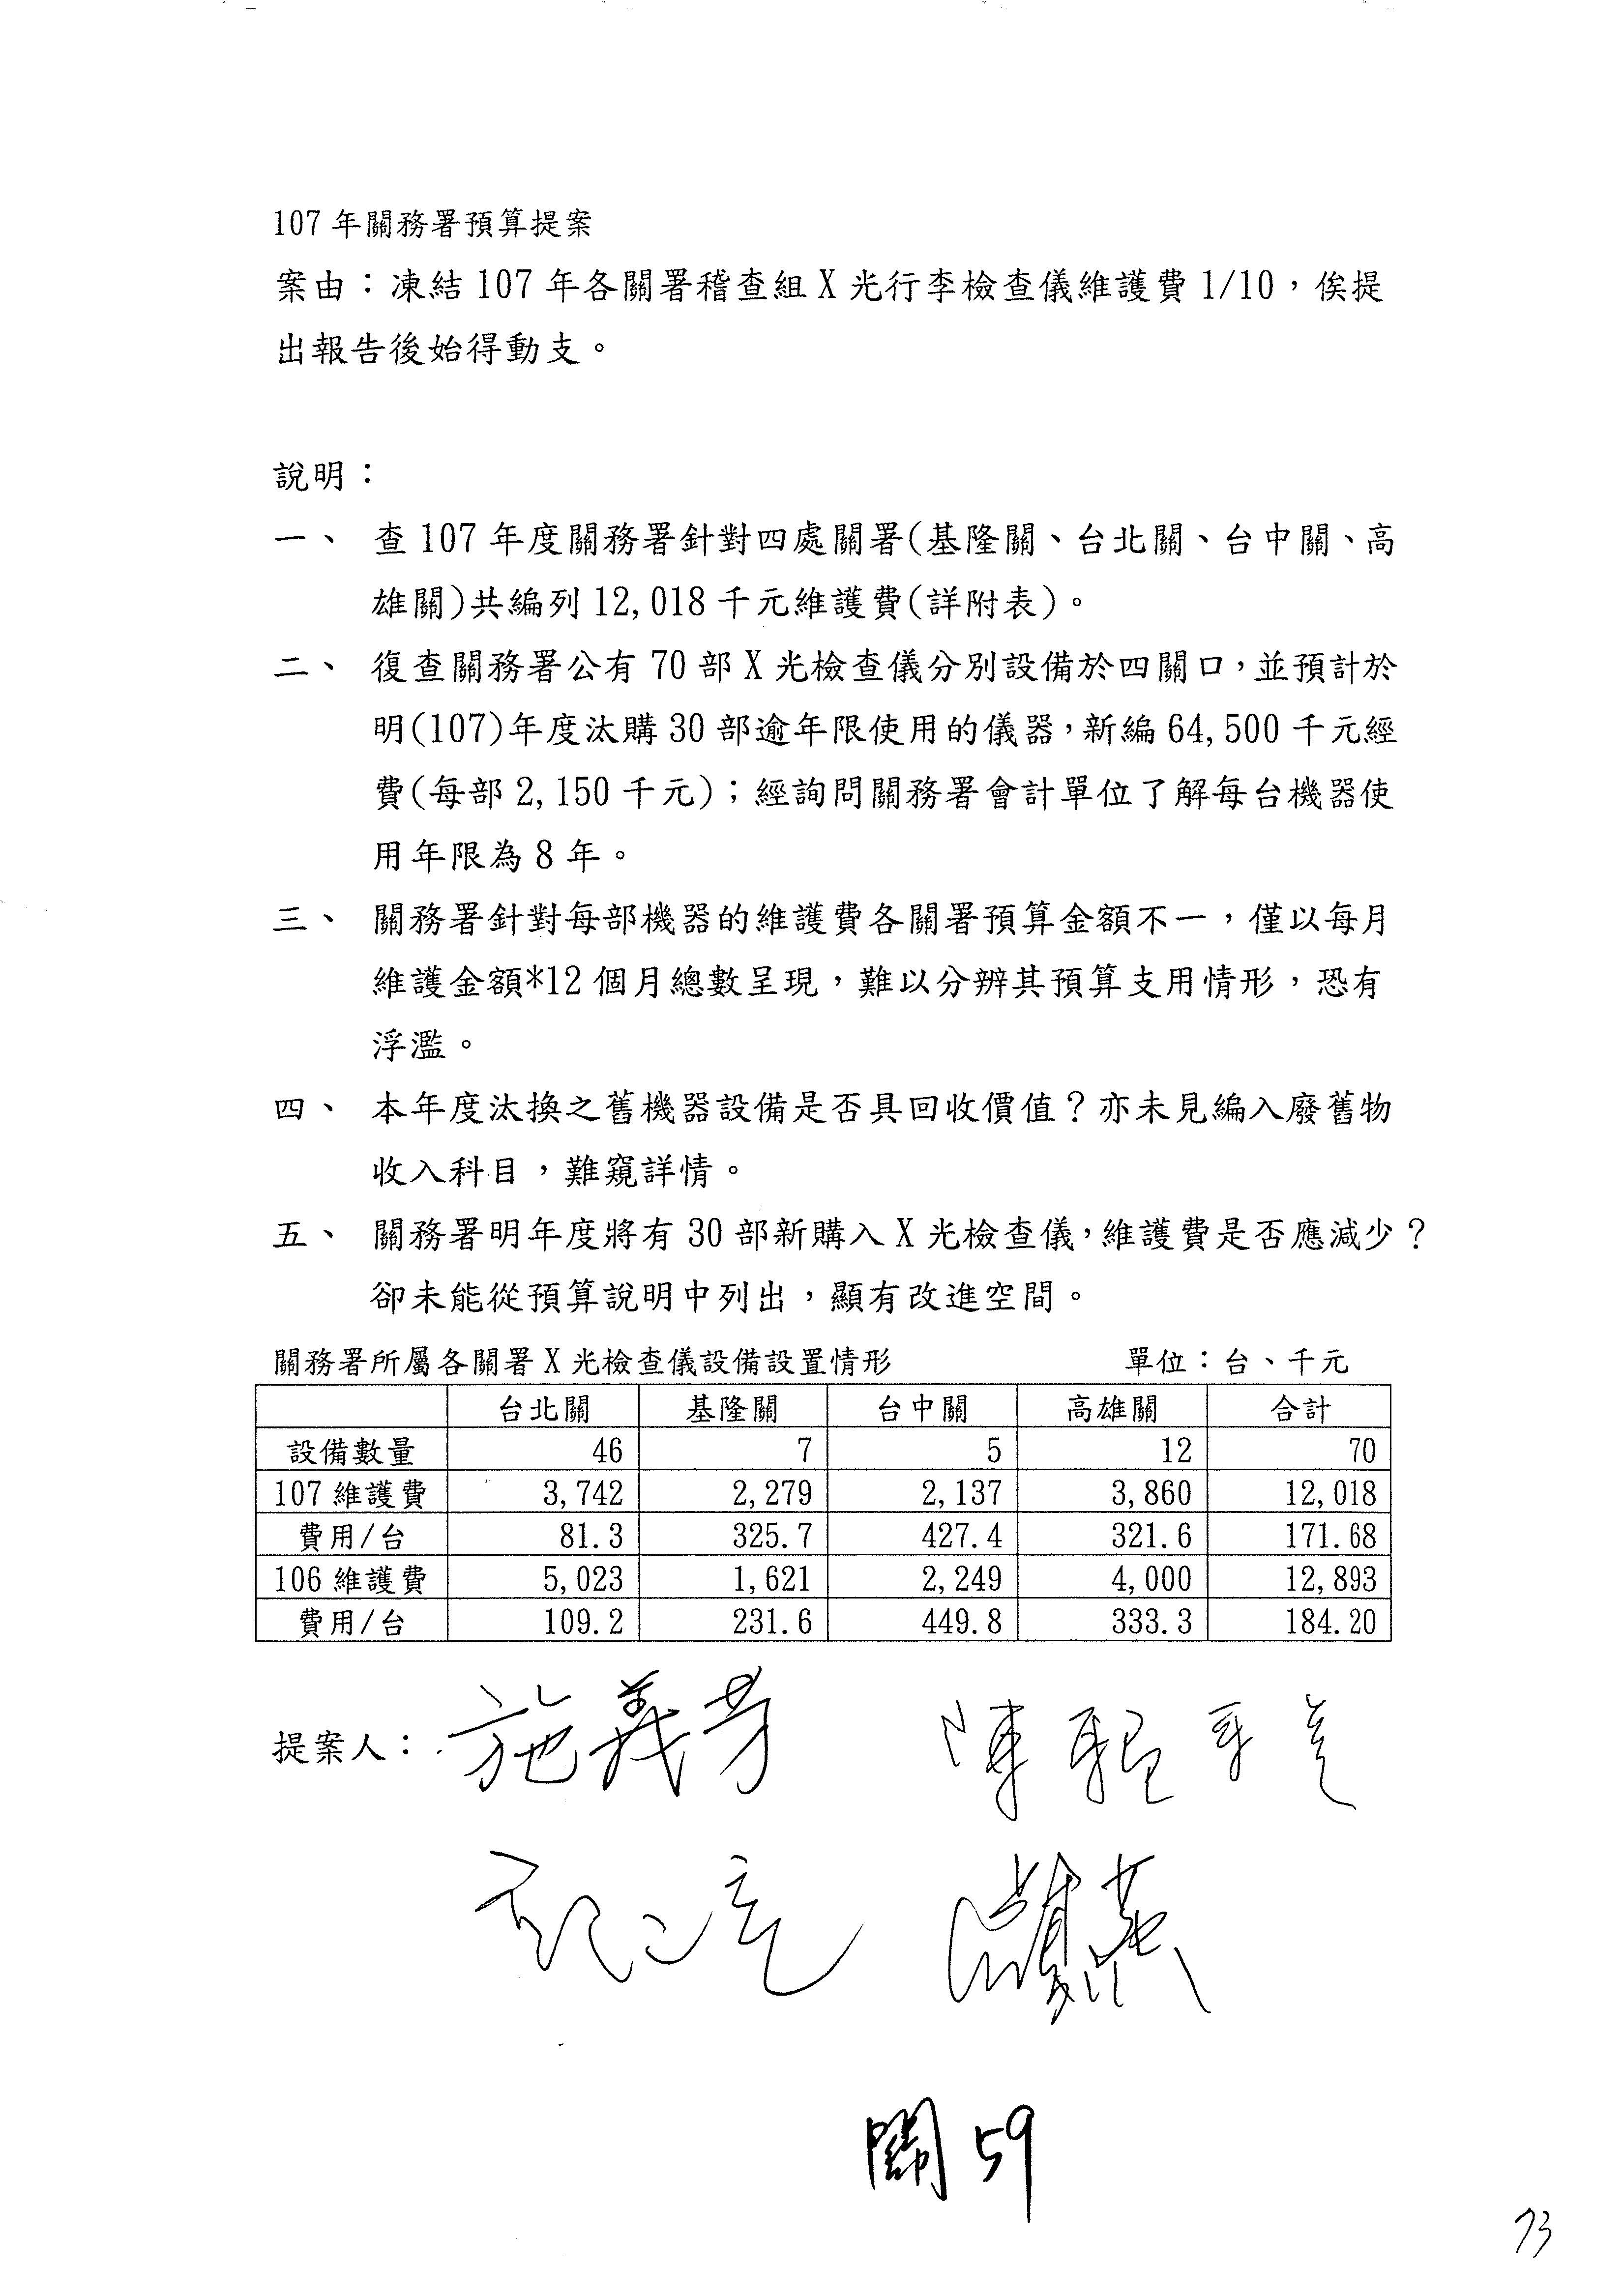 107 年關務署預算提案
案由：凍結 107 年各關署稽查組 X 光行李檢查儀維護費 1/10，俟提
出報告後始得動支。
說明：
一、 查 107 年度關務署針對四處關署(基隆關、台北關、台中關、高
雄關)共編列 12,018 千元維護費(詳附表)。
二、 復查關務署公有 70 部 X 光檢查儀分別設備於四關口，並預計於
明(107)年度汰購 30 部逾年限使用的儀器，新編 64,500 千元經
費(每部 2,150 千元)；經詢問關務署會計單位了解每台機器使
用年限為 8 年。
三、 關務署針對每部機器的維護費各關署預算金額不一，僅以每月
維護金額*12 個月總數呈現，難以分辨其預算支用情形，恐有
浮濫。
四、 本年度汰換之舊機器設備是否具回收價值？亦未見編入廢舊物
收入科目，難窺詳情。
五、 關務署明年度將有 30 部新購入 X 光檢查儀，維護費是否應減少？
卻未能從預算說明中列出，顯有改進空間。
關務署所屬各關署 X 光檢查儀設備設置情形 單位：台、千元
台北關 基隆關 台中關 高雄關 合計
設備數量 46 7 5 12 70
107 維護費 3,742 2,279 2,137 3,860 12,018
費用/台 81.3 325.7 427.4 321.6 171.68
106 維護費 5,023 1,621 2,249 4,000 12,893
費用/台 109.2 231.6 449.8 333.3 184.20
提案人： 施義芳
關 59
73